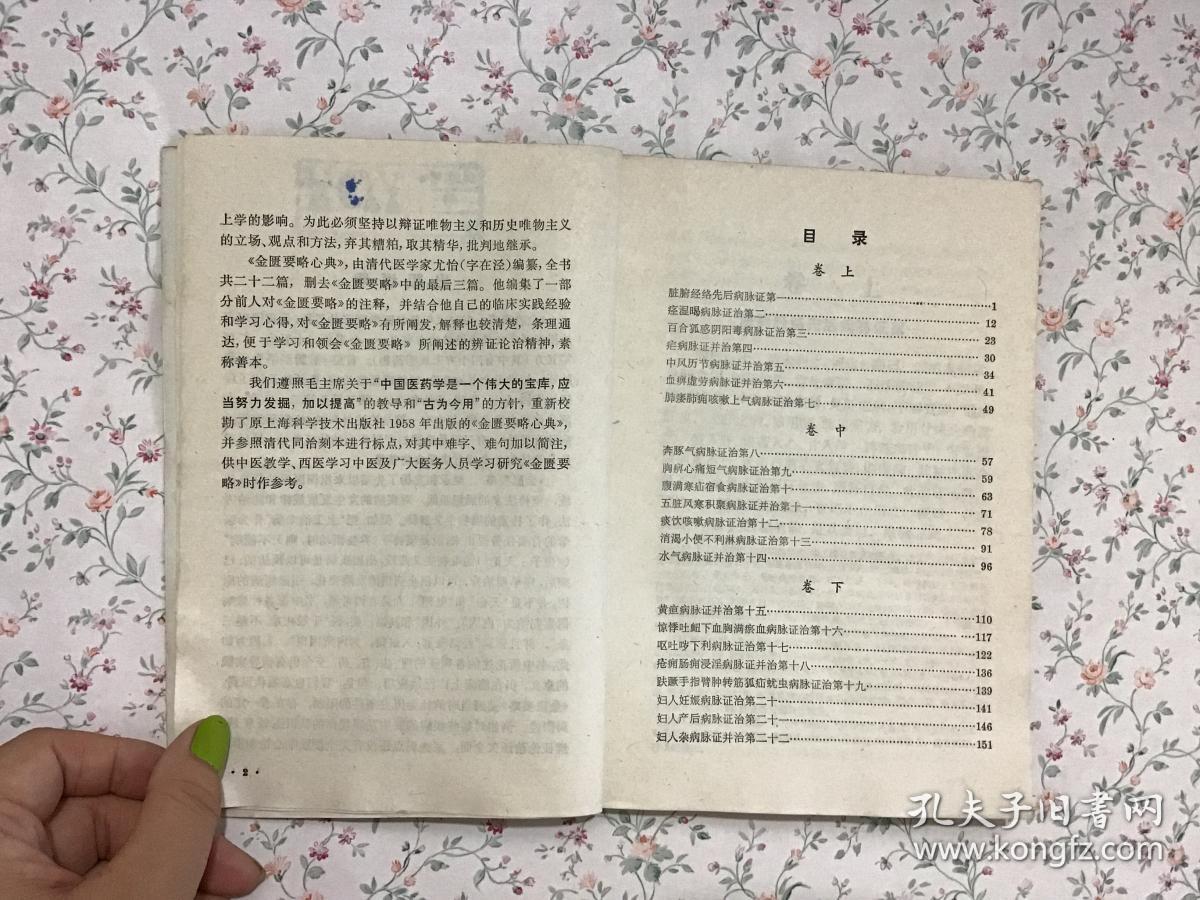 上学的影响。为此必须坚持以辩证唯物主义和历史唯物主义
的立场、观点和方法,弃其糟粕,取其精华,批判地继承。
《金匮要略心典》,由清代医学家尤怡(字在泾)编纂,全书
共二十二篇,删去《金匮要略》中的最后三篇。他编集了一部
分前人对《金匮要略》的注释,并结合他自己的临床实践经验
和学习心得,对《金匮要略》有所阐发,解释也较清楚,条理通
达,便于学习和领会《金匮要略》所阐述的辨证论治精神,素
称善本。
我们遵照毛主席关于“中国医药学是一个伟大的宝库,应
当努力发掘,加以提高”的教导和“古为今用”的方针,重新校
勘了原上海科学技术出版社1958年出版的《金匮要略心典》,
并参照清代同治刻本进行标点,对其中难字、难句加以简注,
供中医教学、西医学习中医及广大医务人员学习研究《金匮要
略》时作参考。
·2·
目录
卷上
脏腑经络先后病脉证第一……1
痉湿暍病脉证治第二……12
百合狐惑阴阳毒病脉证治第三……23
疟病脉证并治第四……30
中风历节病脉证并治第五……34
血痹虚劳病脉证并治第六……41
肺痿肺痈咳嗽上气病脉证治第七……49
卷中
奔豚气病脉证治第八……57
胸痹心痛短气病脉证治第九……59
腹满寒疝宿食病脉证治第十……63
五脏风寒积聚病脉证并治第十一……71
痰饮咳嗽病脉证治第十二……78
消渴小便不利淋病脉证治第十三……91
水气病脉证并治第十四……96
卷下
黄疸病脉证并治第十五……110
惊悸吐衄下血胸满瘀血病脉证治第十六……117
呕吐哕下利病脉证治第十七……122
疮痈肠痈浸淫病脉证并治第十八……136
趺蹶手指臂肿转筋狐疝蚘虫病脉证治第十九……139
妇人妊娠病脉证治第二十……141
妇人产后病脉证治第二十一……146
妇人杂病脉证并治第二十二……151
孔夫子旧书网
www.kongfz.com